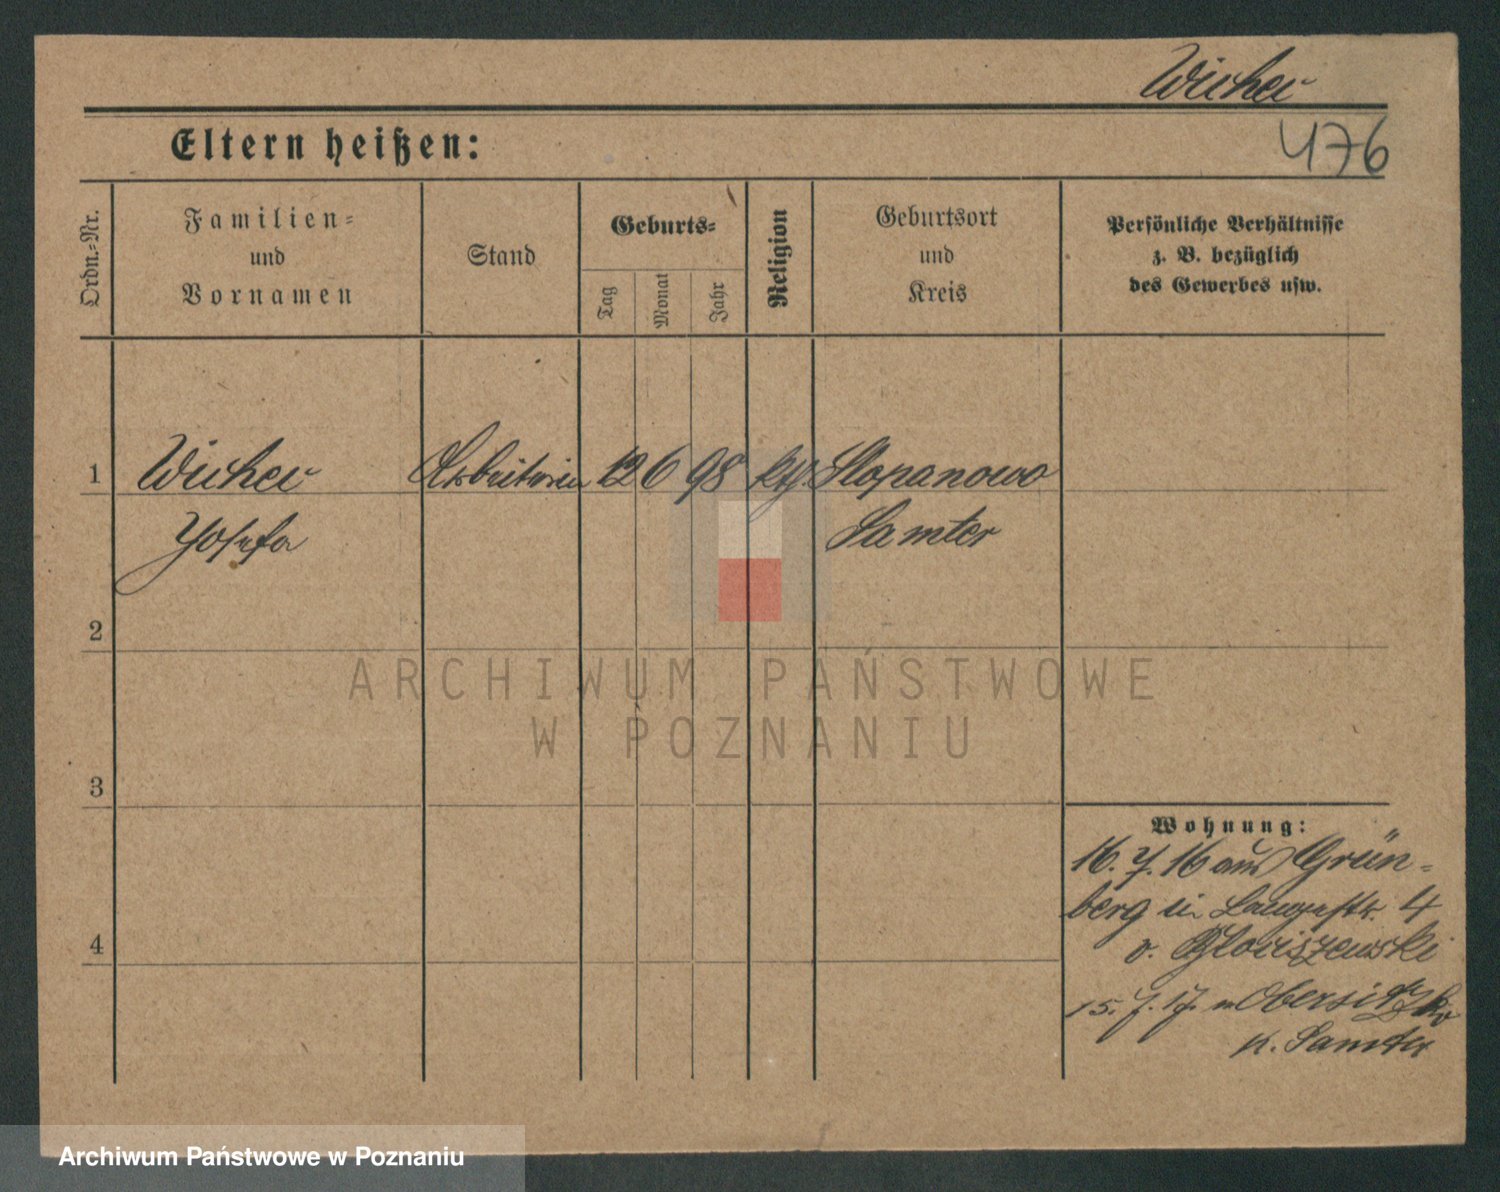 Wicher
476
Eltern heißen:
Ordn.-Nr.
Familien-
und
Vornamen
Stand
Geburts-
Tag
Monat
Jahr
Religion
Geburtsort
und
Kreis
Persönliche Verhältnisse
z. B. bezüglich
des Gewerbes usw.
1
Wicher Arbeiterin 12 6 98 kth. Stopanowo
Josefa
Samter
2
3
4
Wohnung:
16. 7. 16 aus Grün-
berg in Langestr. 4
v. Bloviszewski
15. 7. 17. n Obersitzko
K. Samter
ARCHIWUM PAŃSTWOWE
W POZNANIU
Archiwum Państwowe w Poznaniu